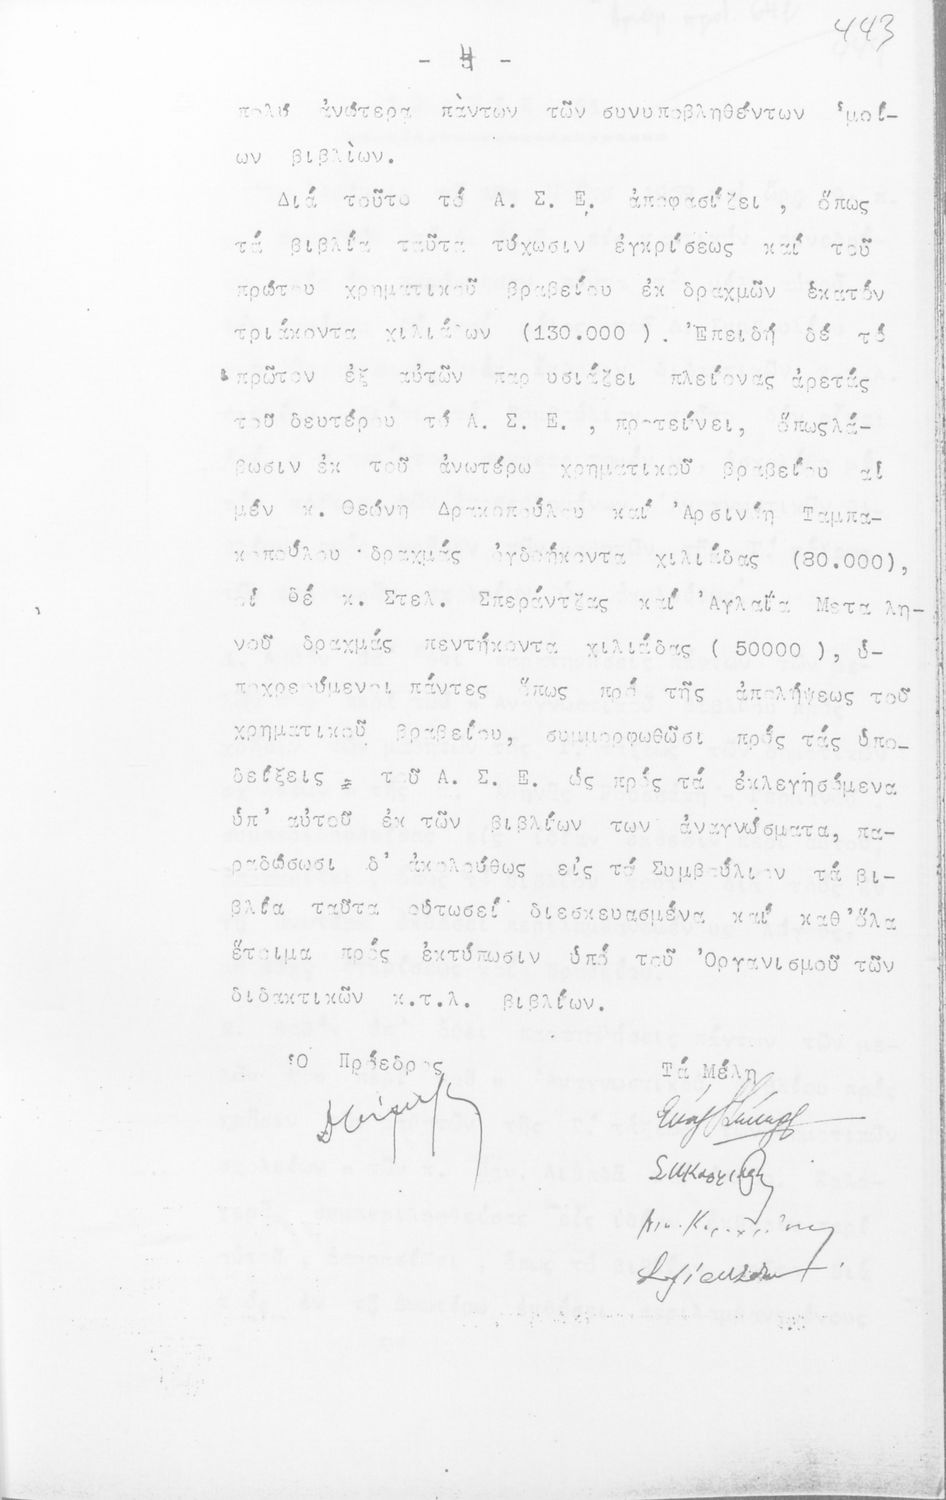 443
- 4 -
πολύ ἀνώτερα πάντων τῶν συνυποβληθέντων ὁμοί-
ων βιβλίων.
Διά τοῦτο τό Α. Σ. Ε. ἀποφασίζει , ὅπως
τά βιβλία ταῦτα τύχωσιν ἐγκρίσεως καί τοῦ
πρώτου χρηματικοῦ βραβείου ἐκ δραχμῶν ἑκατόν
τριάκοντα χιλιάδων (130.000 ) . Ἐπειδή δέ τό
πρῶτον ἐξ αὐτῶν παρουσιάζει πλείονας ἀρετάς
τοῦ δευτέρου τό Α. Σ. Ε. , προτείνει, ὅπως λά-
βωσιν ἐκ τοῦ ἀνωτέρω χρηματικοῦ βραβείου αἱ
μέν κ. Θεώνη Δρακοπούλου καί Ἀρσινόη Ταμπα-
κοπούλου δραχμάς ὀγδοήκοντα χιλιάδας (80.000),
οἱ δέ κ. Στελ. Σπεράντζας καί Ἀγλαΐα Μεταλη-
νοῦ δραχμάς πεντήκοντα χιλιάδας ( 50000 ), ὑ-
ποχρεούμενοι πάντες ὅπως πρό τῆς ἀπολήψεως τοῦ
χρηματικοῦ βραβείου, συμμορφωθῶσι πρός τάς ὑπο-
δείξεις τοῦ Α. Σ. Ε. ὡς πρός τά ἐκλεγησόμενα
ὑπ' αὐτοῦ ἐκ τῶν βιβλίων των ἀναγνώσματα, πα-
ραδώσωσι δ' ἀκολούθως εἰς τό Συμβούλιον τά βι-
βλία ταῦτα οὑτωσεί διεσκευασμένα καί καθ' ὅλα
ἕτοιμα πρός ἐκτύπωσιν ὑπό τοῦ Ὀργανισμοῦ τῶν
διδακτικῶν κ.τ.λ. βιβλίων.
Ὁ Πρόεδρος
Τά Μέλη